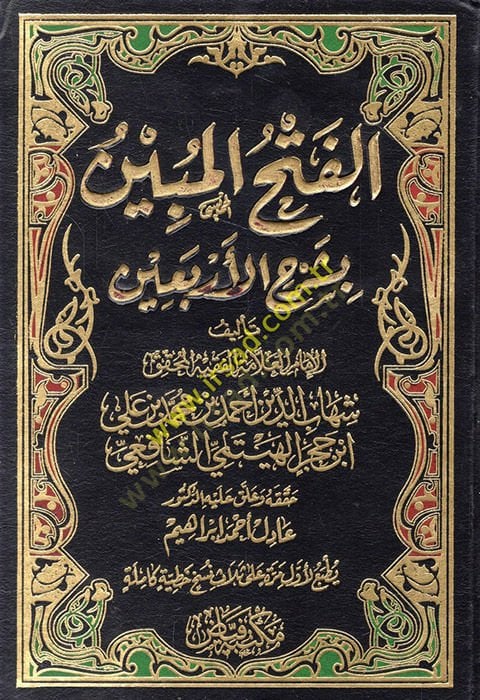 الفَتْحُ المُبِيْنُ
بِشَرْحِ الأَرْبَعِيْن
تأليف
الإمام العلامة الفقيه المحقق
شهاب الدين أحمد بن محمد بن علي
ابن حجر الهيتمي الشافعي
حققه وعلق عليه الدكتور
عادل أحمد إبراهيم
يطبع لأول مرة على ثلاث نسخ خطية كاملة
مكتبة فياض